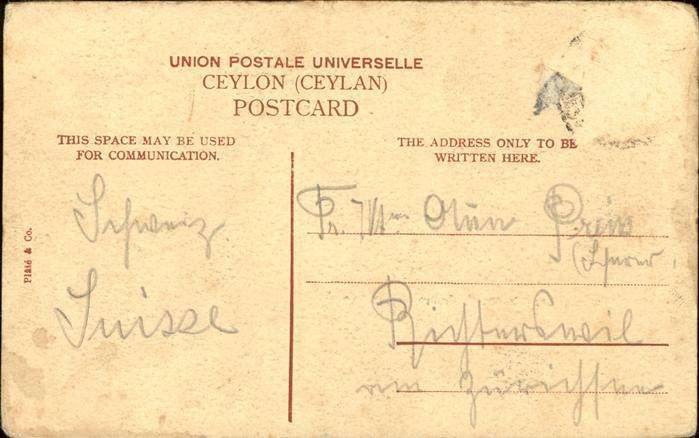 UNION POSTALE UNIVERSELLE
CEYLON (CEYLAN)
POSTCARD
THIS SPACE MAY BE USED
FOR COMMUNICATION.
THE ADDRESS ONLY TO BE
WRITTEN HERE.
Plâté & Co.
Schweiz
Suisse
Richterswil
am Zürichsee